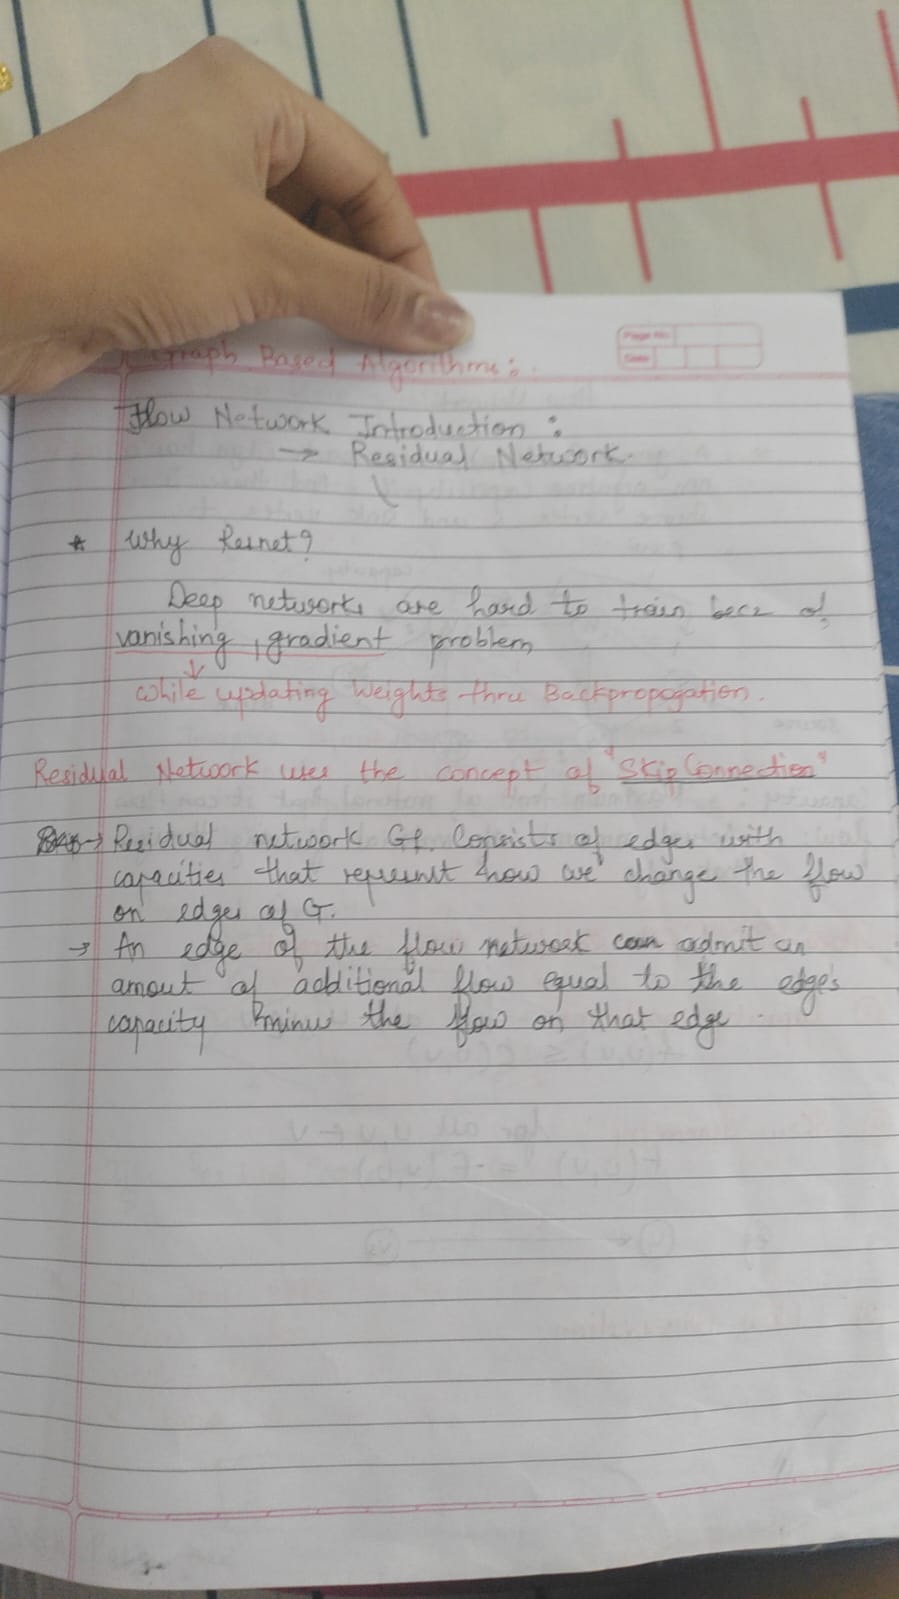 Graph Based Algorithms:
Page No.
Date
Flow Network Introduction:
→ Residual Network.
* Why Resnet?
Deep networks are hard to train becz of
vanishing, gradient problem
↓
while updating Weights thru Backpropogation.
Residual Network uses the concept of "Skip Connection"
→ Residual network Gf. Consists of edges with
capacities that represent how we change the flow
on edges of G.
→ An edge of the flow network can admit an
amout of additional flow equal to the edge's
capacity minus the flow on that edge.
f(u,v) ≤ c(u,v)
for all u,v ∈ V
f(u,v) = -f(v,u)